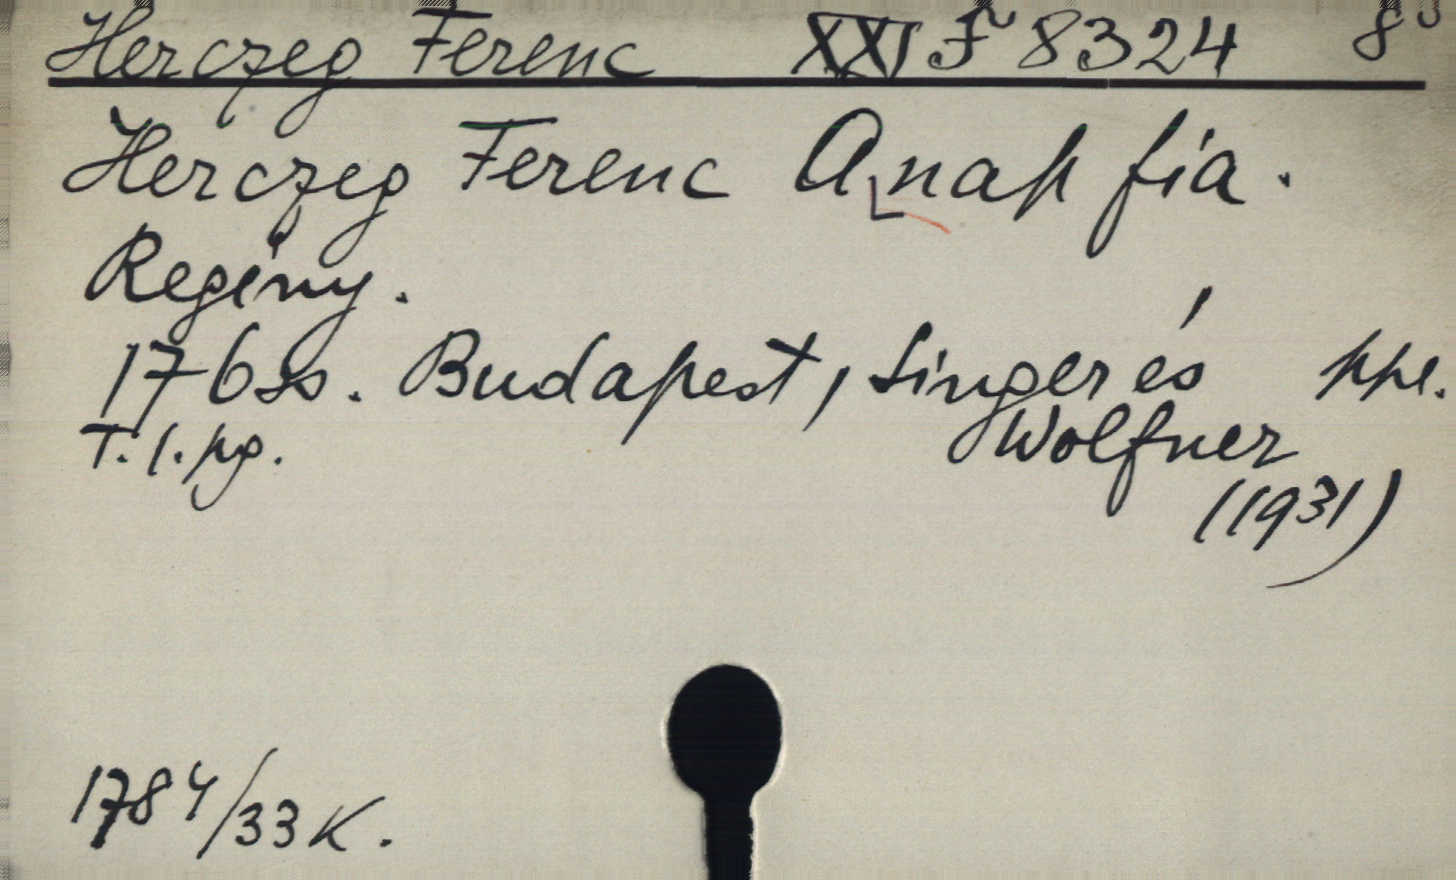 Herczeg Ferenc XXI F 8324 8°
Herczeg Ferenc A nap fia.
Regény.
176 ss. Budapest, Singer és ppe.
T. l. pg. Wolfner
(1931)
1784/33 K.